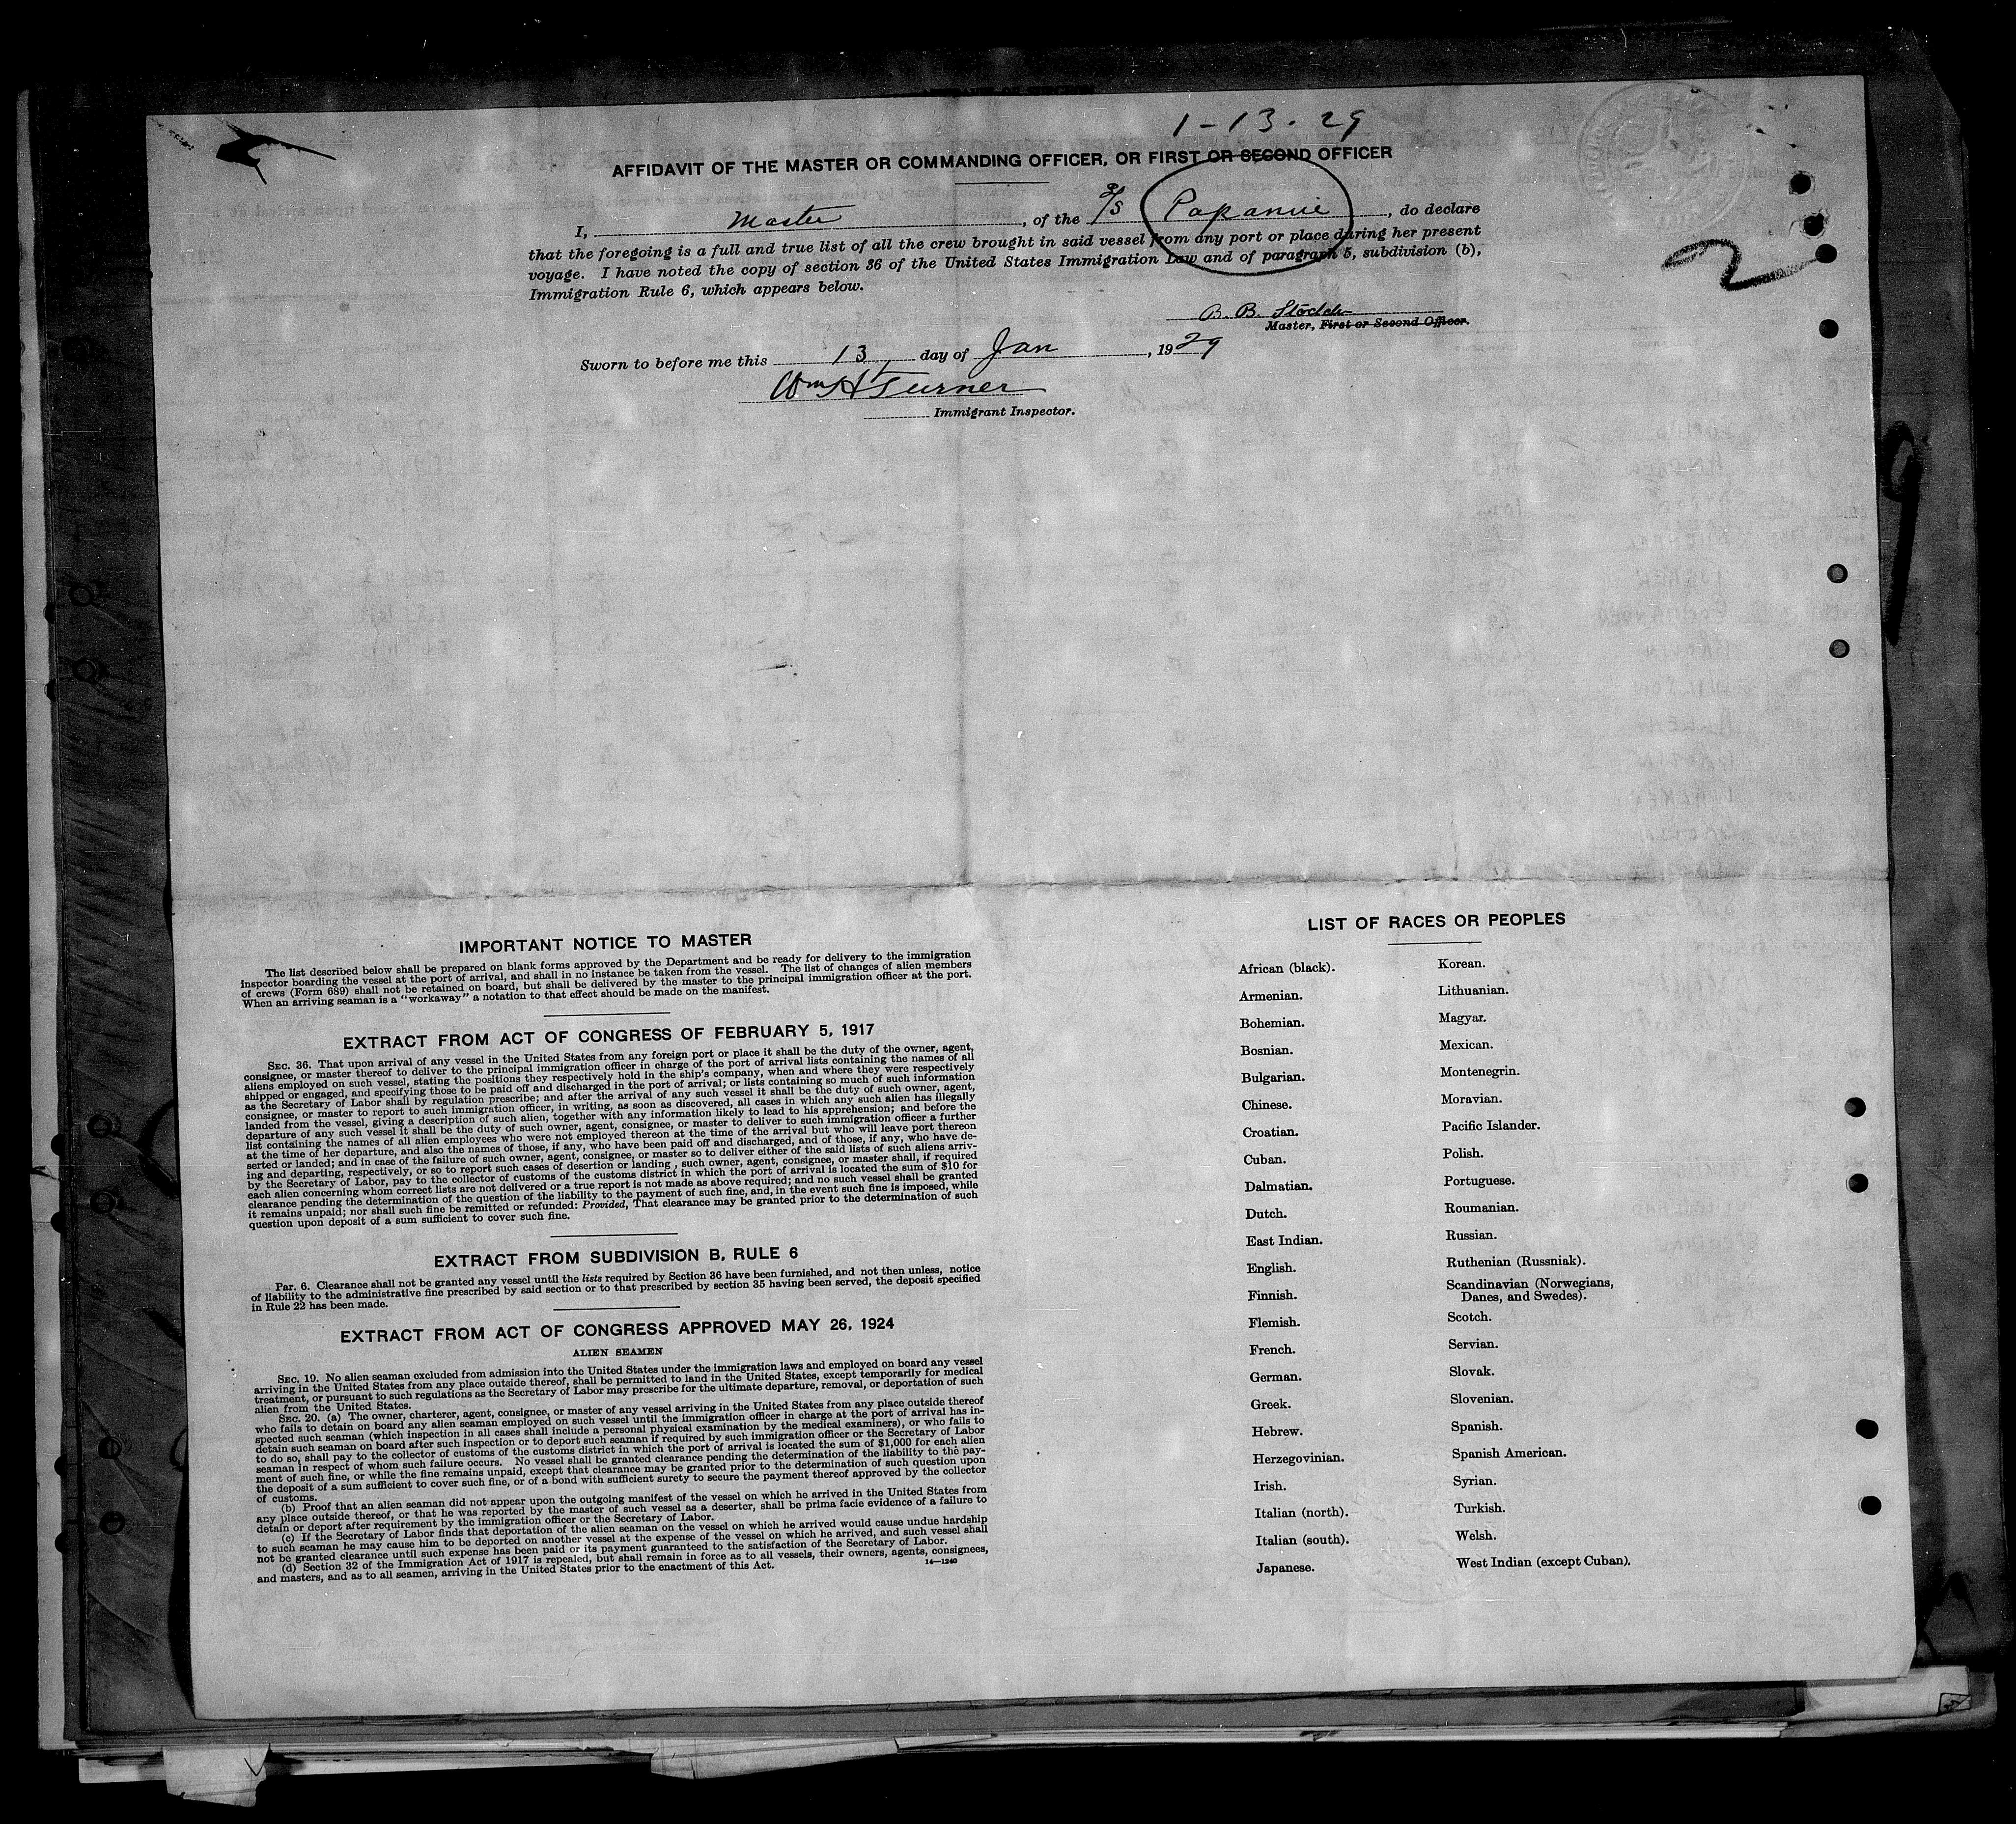 1-13-29
AFFIDAVIT OF THE MASTER OR COMMANDING OFFICER, OR FIRST OR SECOND OFFICER
I, Master, of the S/S Pakanui, do declare
that the foregoing is a full and true list of all the crew brought in said vessel from any port or place during her present
voyage. I have noted the copy of section 36 of the United States Immigration Law and of paragraph 5, subdivision (b),
Immigration Rule 6, which appears below.
B. B.
Master, First or Second Officer.
Sworn to before me this 13 day of Jan, 1929
Wm H Turner
Immigrant Inspector.
2
9
IMPORTANT NOTICE TO MASTER
The list described below shall be prepared on blank forms approved by the Department and be ready for delivery to the immigration
inspector boarding the vessel at the port of arrival, and shall in no instance be taken from the vessel. The list of changes of alien members
of crews (Form 689) shall not be retained on board, but shall be delivered by the master to the principal immigration officer at the port.
When an arriving seaman is a "workaway" a notation to that effect should be made on the manifest.
EXTRACT FROM ACT OF CONGRESS OF FEBRUARY 5, 1917
SEC. 36. That upon arrival of any vessel in the United States from any foreign port or place it shall be the duty of the owner, agent,
consignee, or master thereof to deliver to the principal immigration officer in charge of the port of arrival lists containing the names of all
aliens employed on such vessel, stating the positions they respectively hold in the ship's company, when and where they were respectively
shipped or engaged, and specifying those to be paid off and discharged in the port of arrival; or lists containing so much of such information
as the Secretary of Labor shall by regulation prescribe; and after the arrival of any such vessel it shall be the duty of such owner, agent,
consignee, or master to report to such immigration officer, in writing, as soon as discovered, all cases in which any such alien has illegally
landed from the vessel, giving a description of such alien, together with any information likely to lead to his apprehension; and before the
departure of any such vessel it shall be the duty of such owner, agent, consignee, or master to deliver to such immigration officer a further
list containing the names of all alien employees who were not employed thereon at the time of the arrival but who will leave port thereon
at the time of her departure, and also the names of those, if any, who have been paid off and discharged, and of those, if any, who have de-
serted or landed; and in case of the failure of such owner, agent, consignee, or master so to deliver either of the said lists of such aliens arriv-
ing and departing, respectively, or so to report such cases of desertion or landing, such owner, agent, consignee, or master shall, if required
by the Secretary of Labor, pay to the collector of customs of the customs district in which the port of arrival is located the sum of $10 for
each alien concerning whom correct lists are not delivered or a true report is not made as above required; and no such vessel shall be granted
clearance pending the determination of the question of the liability to the payment of such fine, and, in the event such fine is imposed, while
it remains unpaid; nor shall such fine be remitted or refunded: Provided, That clearance may be granted prior to the determination of such
question upon deposit of a sum sufficient to cover such fine.
EXTRACT FROM SUBDIVISION B, RULE 6
Par. 6. Clearance shall not be granted any vessel until the lists required by Section 36 have been furnished, and not then unless, notice
of liability to the administrative fine prescribed by said section or to that prescribed by section 35 having been served, the deposit specified
in Rule 22 has been made.
EXTRACT FROM ACT OF CONGRESS APPROVED MAY 26, 1924
ALIEN SEAMEN
SEC. 19. No alien seaman excluded from admission into the United States under the immigration laws and employed on board any vessel
arriving in the United States from any place outside thereof, shall be permitted to land in the United States, except temporarily for medical
treatment, or pursuant to such regulations as the Secretary of Labor may prescribe for the ultimate departure, removal, or deportation of such
alien from the United States.
SEC. 20. (a) The owner, charterer, agent, consignee, or master of any vessel arriving in the United States from any place outside thereof
who fails to detain on board any alien seaman employed on such vessel until the immigration officer in charge at the port of arrival has in-
spected such seaman (which inspection in all cases shall include a personal physical examination by the medical examiners), or who fails to
detain such seaman on board after such inspection or to deport such seaman if required by such immigration officer or the Secretary of Labor
to do so, shall pay to the collector of customs of the customs district in which the port of arrival is located the sum of $1,000 for each alien
seaman in respect of whom such failure occurs. No vessel shall be granted clearance pending the determination of the liability to the pay-
ment of such fine, or while the fine remains unpaid, except that clearance may be granted prior to the determination of such question upon
the deposit of a sum sufficient to cover such fine, or of a bond with sufficient surety to secure the payment thereof approved by the collector
of customs.
(b) Proof that an alien seaman did not appear upon the outgoing manifest of the vessel on which he arrived in the United States from
any place outside thereof, or that he was reported by the master of such vessel as a deserter, shall be prima facie evidence of a failure to
detain or deport after requirement by the immigration officer or the Secretary of Labor.
(c) If the Secretary of Labor finds that deportation of the alien seaman on the vessel on which he arrived would cause undue hardship
to such seaman he may cause him to be deported on another vessel at the expense of the vessel on which he arrived, and such vessel shall
not be granted clearance until such expense has been paid or its payment guaranteed to the satisfaction of the Secretary of Labor.
(d) Section 32 of the Immigration Act of 1917 is repealed, but shall remain in force as to all vessels, their owners, agents, consignees,
and masters, and as to all seamen, arriving in the United States prior to the enactment of this Act.
14—1240
LIST OF RACES OR PEOPLES
African (black).
Armenian.
Bohemian.
Bosnian.
Bulgarian.
Chinese.
Croatian.
Cuban.
Dalmatian.
Dutch.
East Indian.
English.
Finnish.
Flemish.
French.
German.
Greek.
Hebrew.
Herzegovinian.
Irish.
Italian (north).
Italian (south).
Japanese.
Korean.
Lithuanian.
Magyar.
Mexican.
Montenegrin.
Moravian.
Pacific Islander.
Polish.
Portuguese.
Roumanian.
Russian.
Ruthenian (Russniak).
Scandinavian (Norwegians,
Danes, and Swedes).
Scotch.
Servian.
Slovak.
Slovenian.
Spanish.
Spanish American.
Syrian.
Turkish.
Welsh.
West Indian (except Cuban).